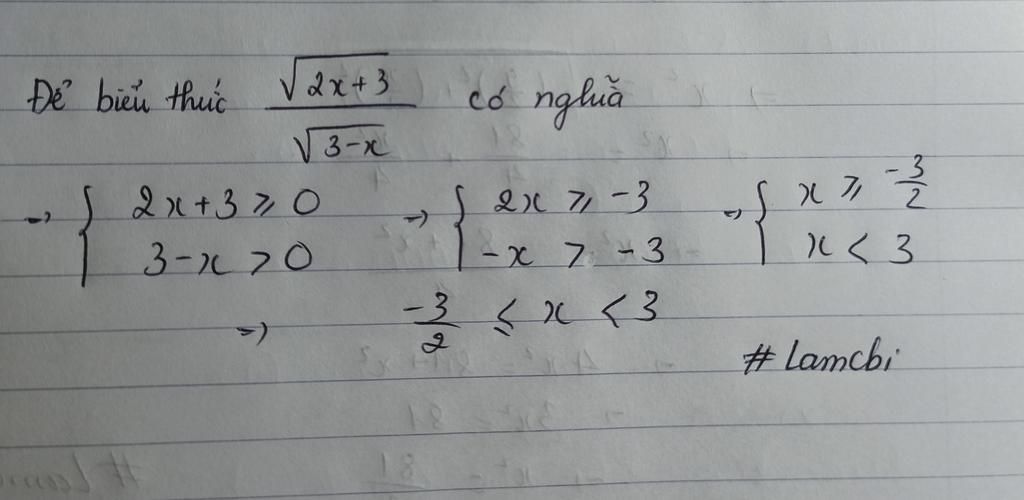 Để biểu thức \frac{\sqrt{2x+3}}{\sqrt{3-x}} có nghĩa
=> { 2x+3 ≥ 0 => { 2x ≥ -3 => { x ≥ \frac{-3}{2}
3-x > 0 -x > -3 x < 3
=> \frac{-3}{2} ≤ x < 3
# Lamcbi